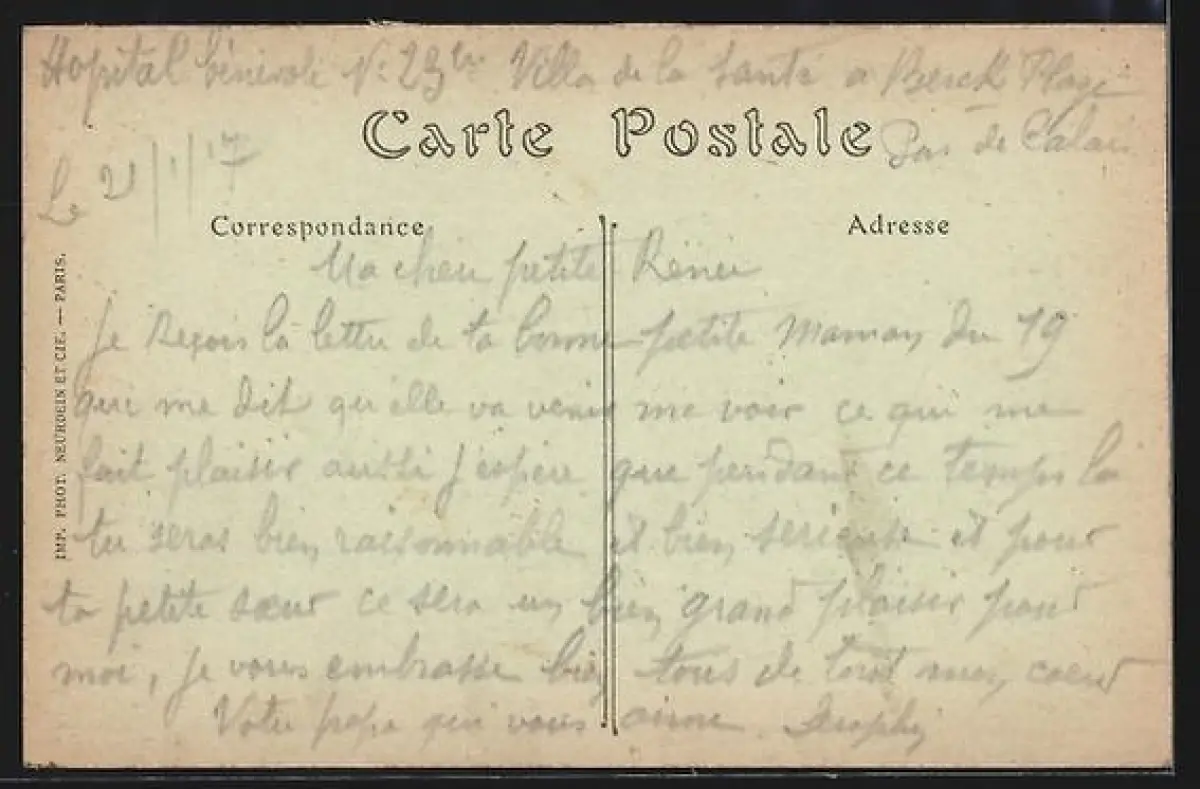 Hopital bénévole N: 23 bis Villa de la Santé a Berck Plage
Carte Postale
Pas de Calais
Le 21/1/17
Correspondance
Adresse
Ma cheri petite Renée
Je Reçois la lettre de ta bonne petite Maman du 19
qui me dit qu'elle va venir me voir ce qui me
fait plaisir aussi J'espère que pendant ce temps la
tu seras bien raisonnable et bien serieuse et pour
ta petite sœur ce sera un bien grand plaisir pour
moi, je vous embrasse bien tous de tout mon coeur
Votre papa qui vous aime.
IMP. PHOT. NEURDEIN ET CIE. — PARIS.